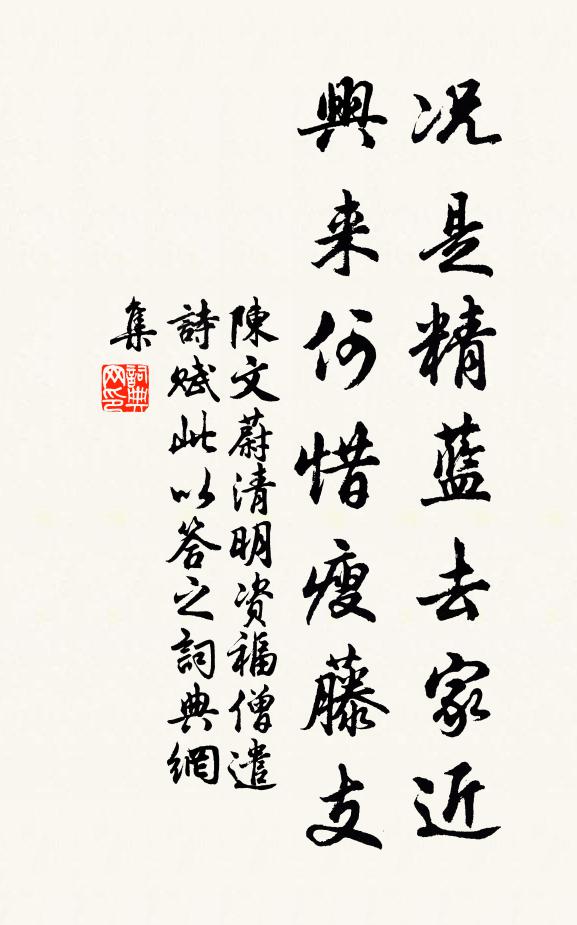 况是精蓝去家近
興来何惜瘦藤支
陳文蔚清明资福僧遣
詩赋此以答之詞典網
集
詞典
网印